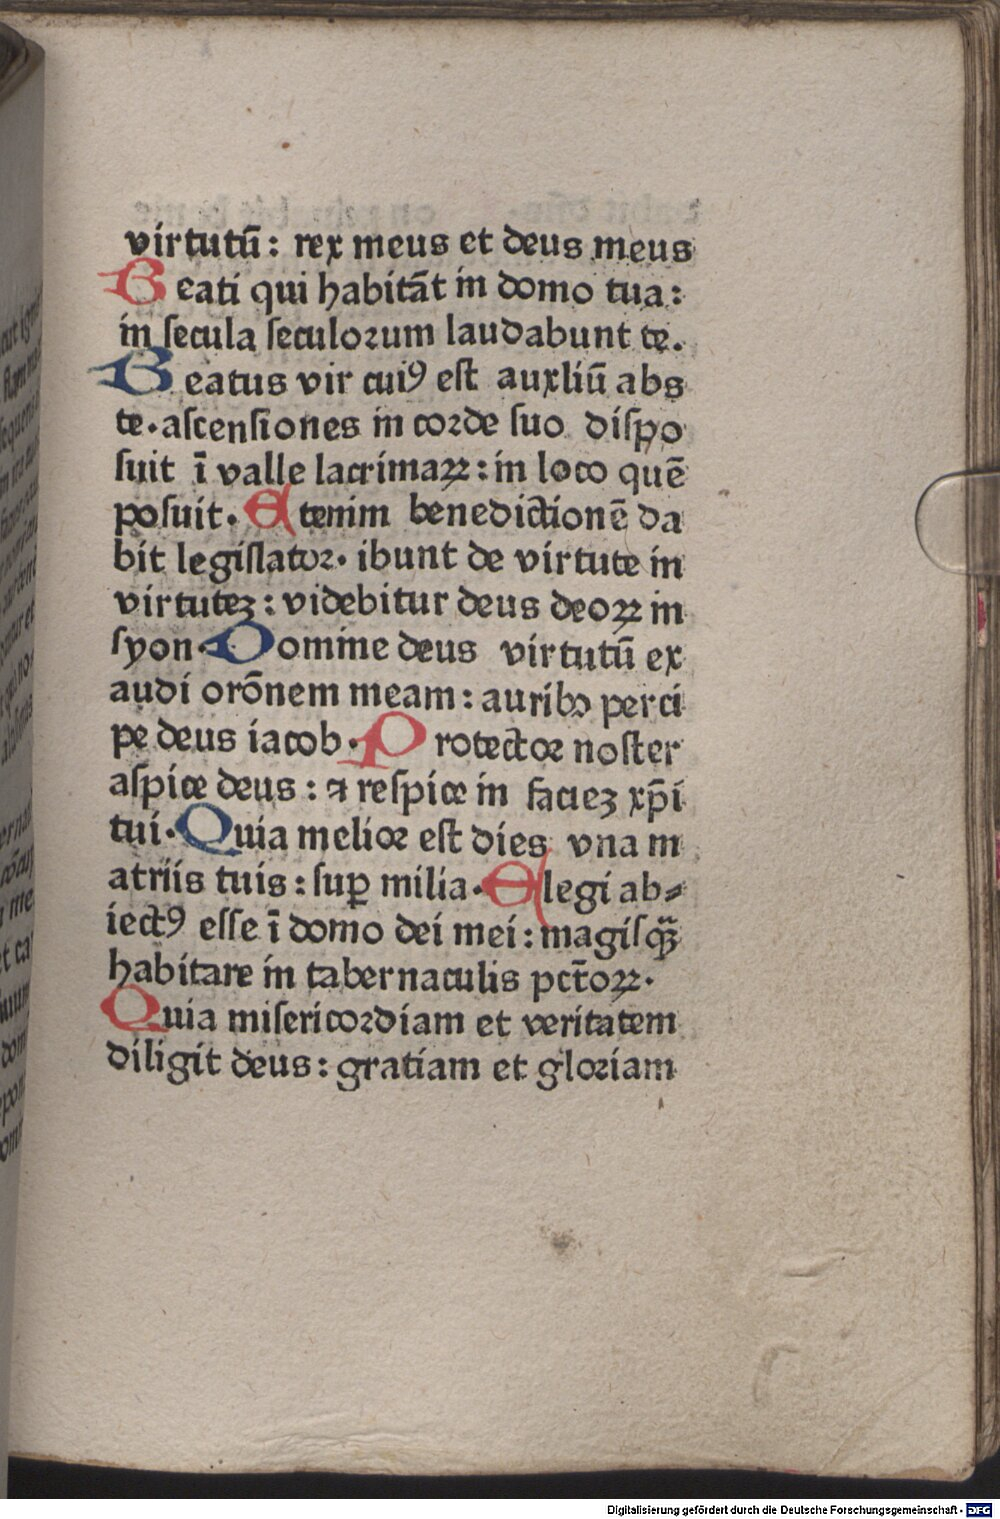 virtutū: rex meus et deus meus
Beati qui habitāt in domo tua:
in secula seculoꝛum laudabunt te.
Beatus vir cuiꝰ est auxliū abs
te. ascensiones in coꝛde suo dispo
suit ī valle lacrimaꝝ: in loco quē
posuit. Etenim benedictionē da
bit legislatoꝛ. ibunt de virtute in
virtuteꝫ: videbitur deus deoꝝ in
syon. Domine deus virtutū ex
audi orōnem meam: auribꝰ perci
pe deus iacob. Protectoꝛ noster
aspice deus: ⁊ respice in facieꝫ xp̄i
tui. Quia melioꝛ est dies vna in
atriis tuis: suꝑ milia. Elegi ab⸗
iectꝰ esse ī domo dei mei: magisqꝫ̄
habitare in tabernaculis pctōꝝ.
Quia misericoꝛdiam et veritatem
diligit deus: gratiam et gloꝛiam
Digitalisierung gefördert durch die Deutsche Forschungsgemeinschaft - DFG